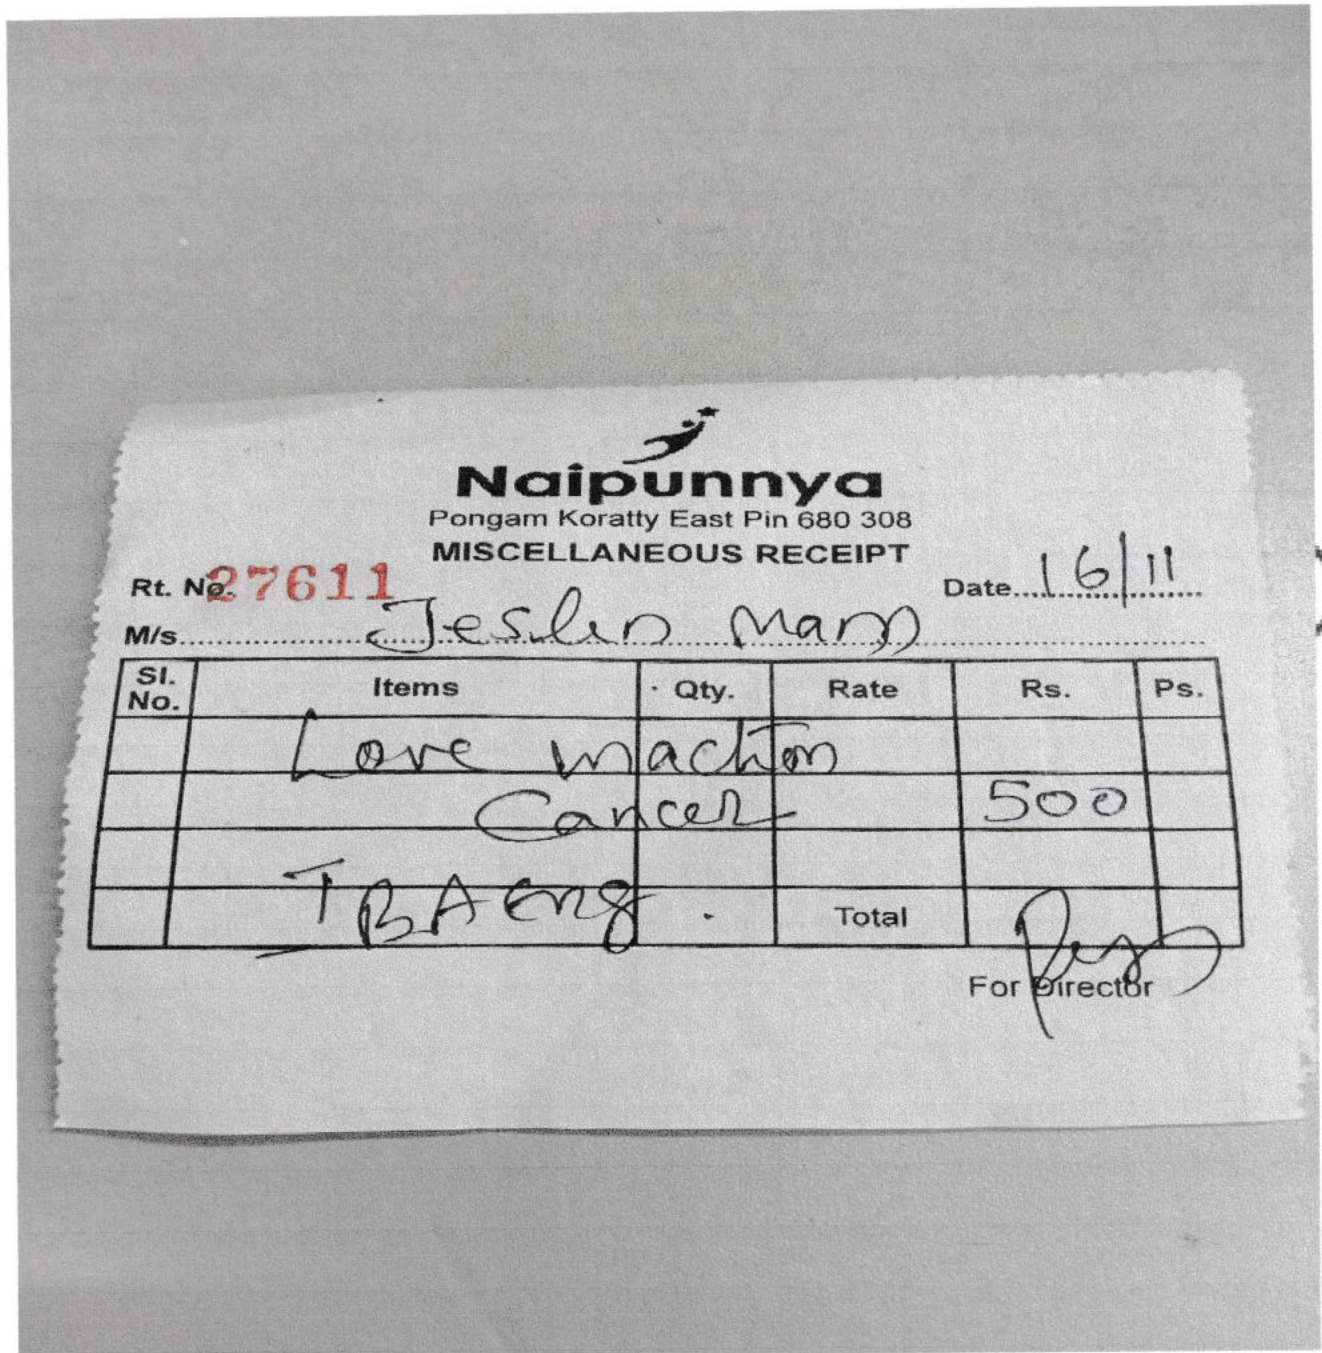 Naipunnya
Pongam Koratty East Pin 680 308
MISCELLANEOUS RECEIPT
Rt. No. 27611 Date 16/11
M/s. Jeslin
Sl. No. Items Qty. Rate Rs. Ps.
Love
Cancer 500
I BA Eng.
Total
For Director